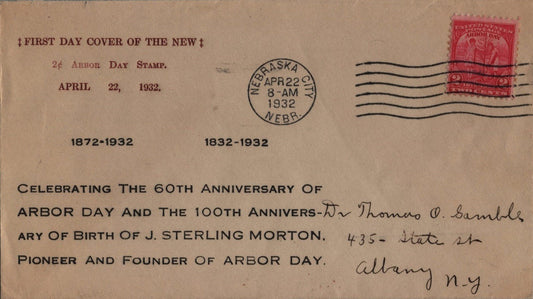 ‡FIRST DAY COVER OF THE NEW‡
2¢ ARBOR DAY STAMP.
APRIL 22, 1932.
UNITED STATES POSTAGE
ARBOR DAY
2 2
TWO CENTS
NEBRASKA CITY
APR 22
8-AM
1932
NEBR.
1872-1932 1832-1932
CELEBRATING THE 60TH ANNIVERSARY OF
ARBOR DAY AND THE 100TH ANNIVERS-
ARY OF BIRTH OF J. STERLING MORTON,
PIONEER AND FOUNDER OF ARBOR DAY.
Dr Thomas O. Gamble
435- State St
Albany N.Y.